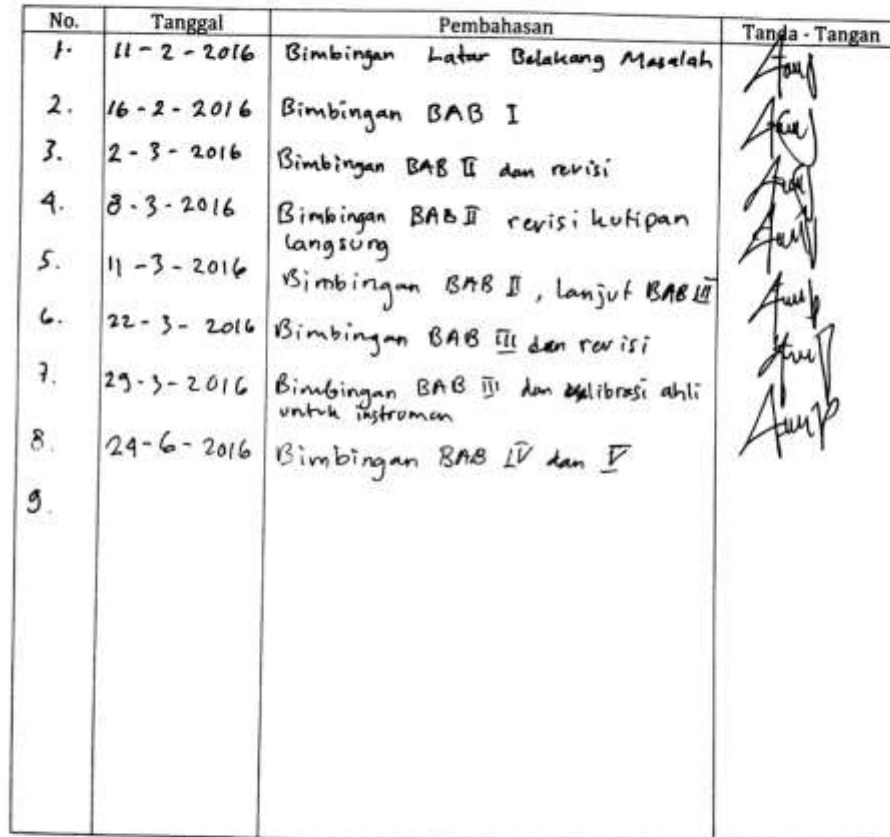 No. Tanggal Pembahasan Tanda - Tangan
1. 11 - 2 - 2016 Bimbingan Latar Belakang Masalah
2. 16 - 2 - 2016 Bimbingan BAB I
3. 2 - 3 - 2016 Bimbingan BAB II dan revisi
4. 8 - 3 - 2016 Bimbingan BAB II revisi kutipan
langsung
5. 11 - 3 - 2016 Bimbingan BAB II , lanjut BAB III
6. 22 - 3 - 2016 Bimbingan BAB III dan revisi
7. 29 - 3 - 2016 Bimbingan BAB III dan kalibrasi ahli
untuk instrumen
8. 24 - 6 - 2016 Bimbingan BAB IV dan V
9.